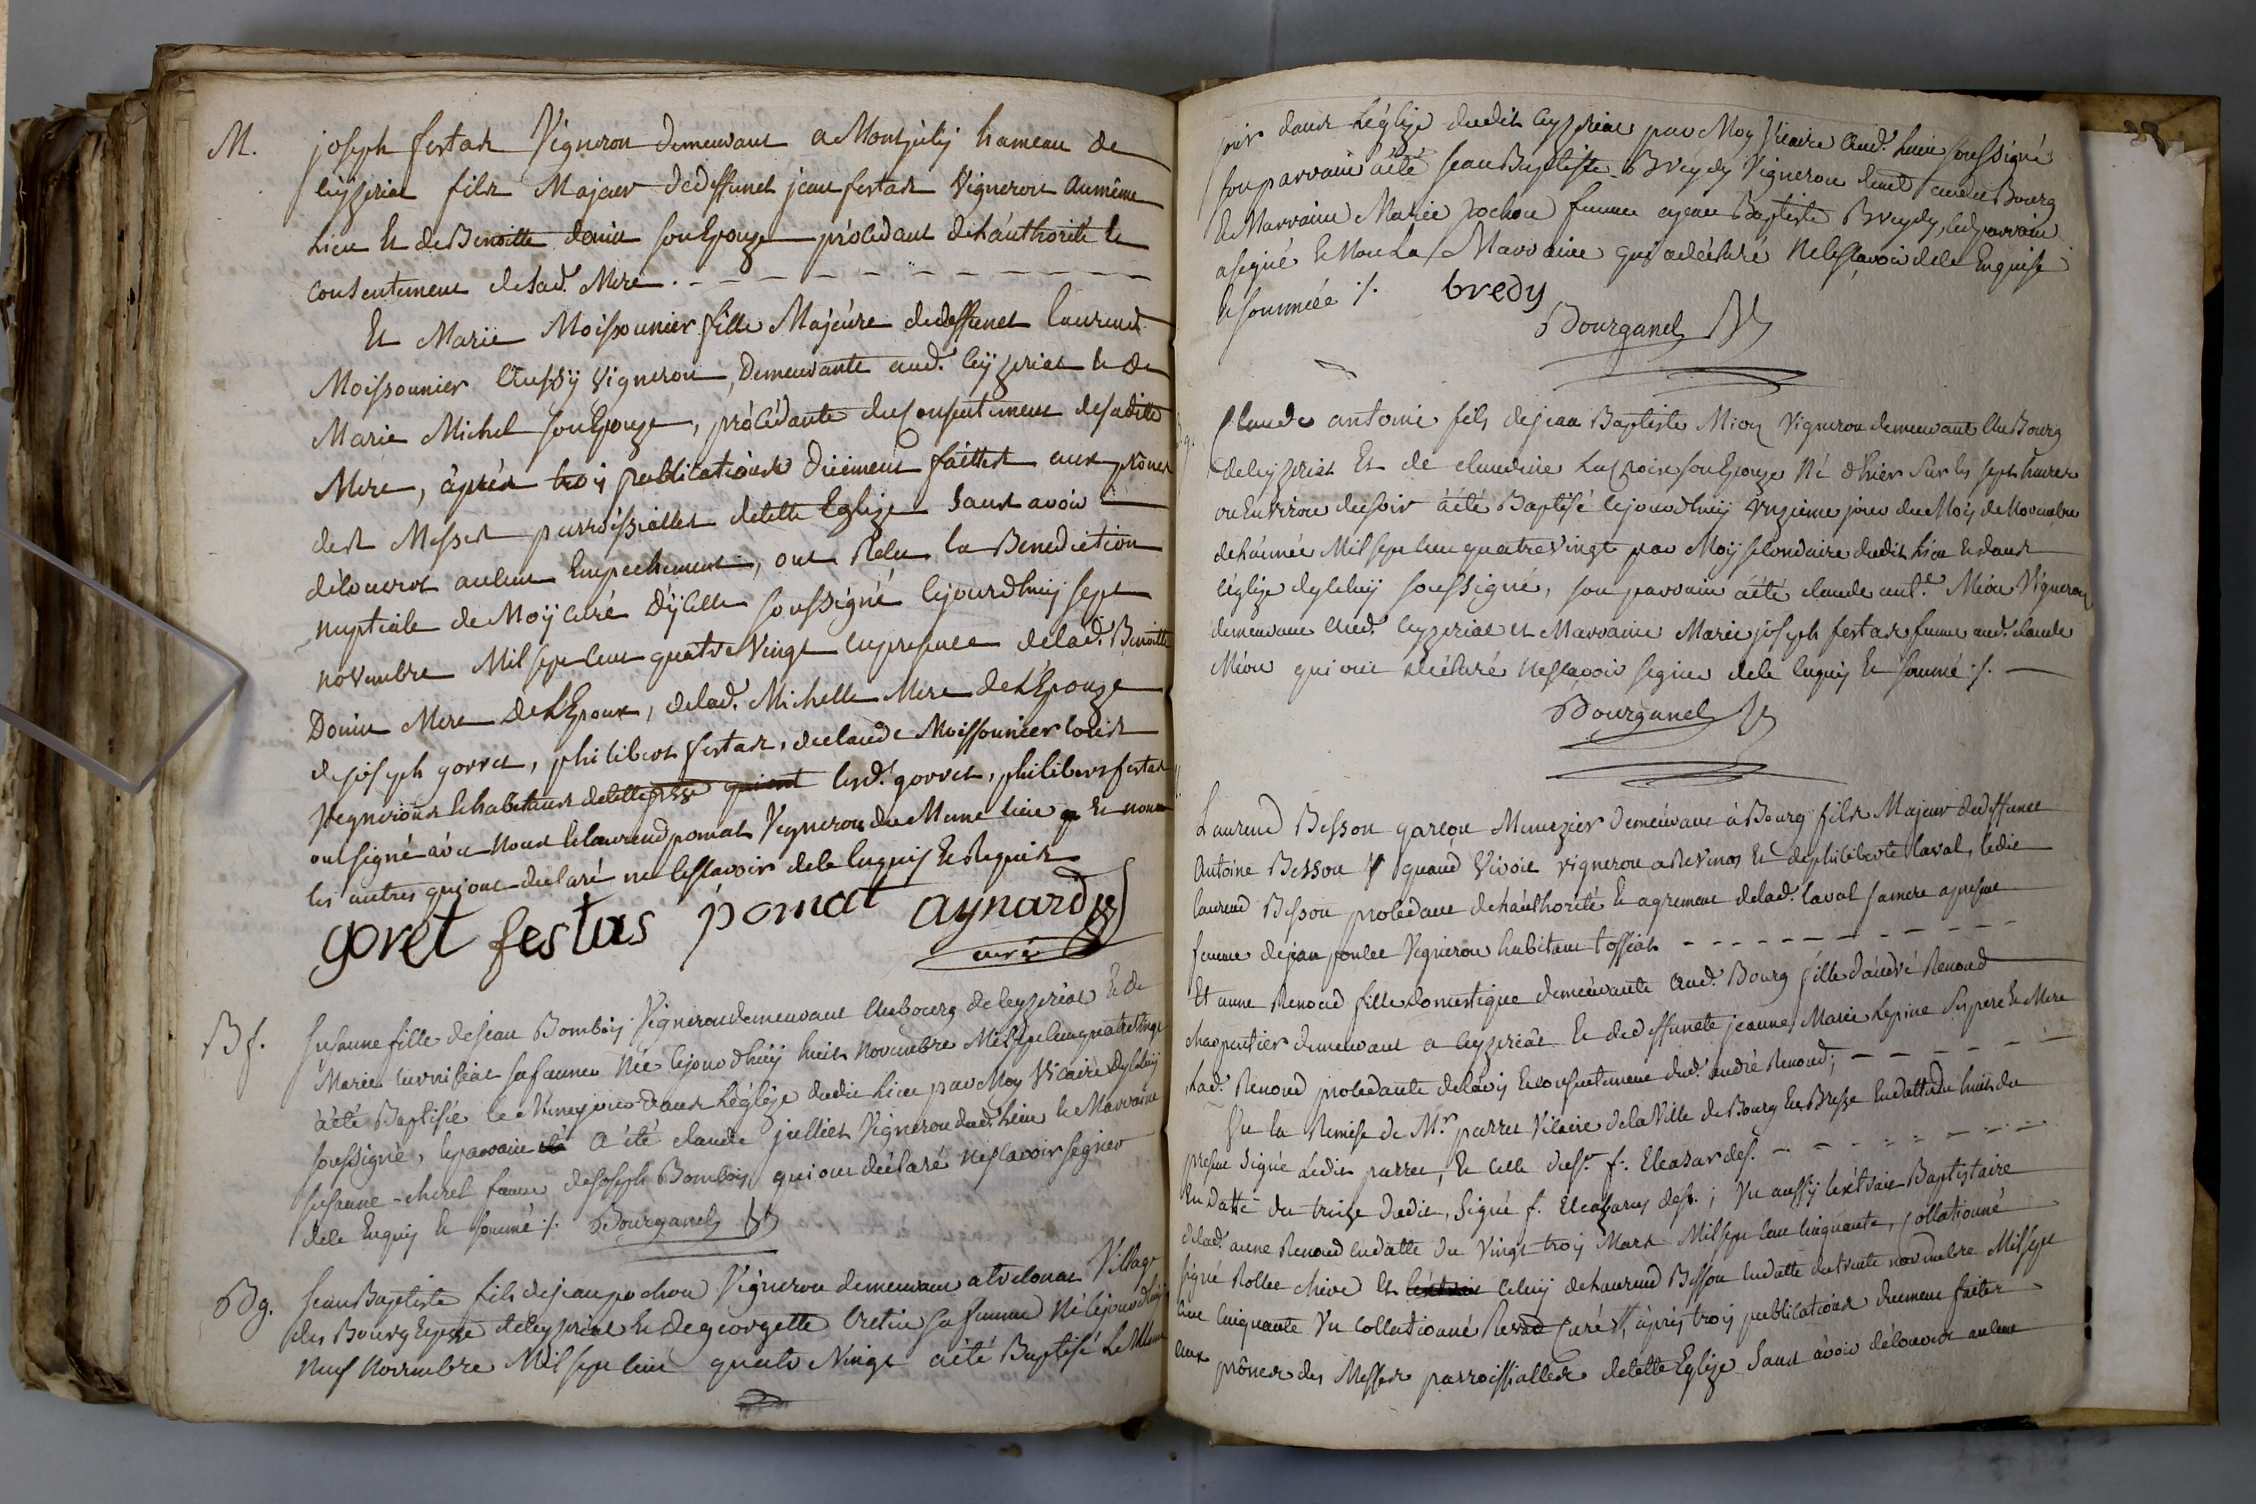 M. joseph festas Vigneron demeurant a Montjuly hameau de
Ceyzeriat fils Majeur de deffunct jean festas Vigneron au même
Lieu Et de Benoitte donin son Epouze procédant de l'authorité et
consentement de sad. Mere.
Et Marie Moissonnier fille Majeure de deffunct laurend
Moissonnier Aussÿ Vigneron, demeurante aud. Ceÿzeriat et de
Marie Michel son Epouze, procédante du Consentement de sadite
Mere, après trois publications düement faittes aux prônes
des Messes parroissialles de cette Eglize Sans avoir
découvert aucun Empechement, ont Reçu la Benediction
nuptiale de Moÿ curé d'ÿcelle soussigné cejourdhuy sept
novembre Mil sept Cent quatre Vingt en presence de lad. Benoitte
Donin Mere de L'Epoux, de lad. Michelle Mere de L'Epouze
de joseph gorret, philibert festas, de claude Moissonnier tous
Vignerons et habitants de cette psse qui ont lesd. gorret, philibert festas
ont signé avec Nous et laurend pomat Vigneron du Meme lieu et non
les autres qui ont declaré ne le sçavoir de ce Enquis Et Requis
goret festas pomat aynard
curé
Bf. Susanne fille de Jean Bomboy Vigneron demeurant au bourg de ceyzeriat et de
Marie sa femme Née Cejourdhuy huit Novembre Mil sept Cent quatre Vingt
a été Baptisée le Meme jour dans L'église dudit Lieu par Moy Vicaire dyceluy
soussigné, le parrain a été claude jullien Vigneron dud. Lieu et la Marraine
susanne cheret femme de Joseph Bomboy qui ont déclaré ne sçavoir signer
de ce Enquis et sommé ./. Bourganel
Bg. Jean Baptiste fils de jean pochon Vigneron demeurant a Village
des Bourg de ceyzeriat et de georgette Cretin sa femme Né Cejourdhuy
Neuf Novembre Mil sept Cent quatre Vingt a été Baptisé Le Meme
jour dans L'églize dudit Ceyzeriat par Moy Vicaire Aud. Lieu soussigné
son parrain a été Jean Baptiste Bredy Vigneron dud. Bourg
Et Marraine Marie pochon femme a jean Baptiste Bredy, led. parrain
a signé Et Non La Marraine qui a déclaré Ne le sçavoir de ce Enquise
Et sommée ./. bredy
Bourganel
Bg. Claude antoine fils de jean Baptiste Mion Vigneron demeurant Au Bourg
de Ceyzeriat Et de claudine son Epouze Né d'hier Sur les sept heures
ou Environ du soir a été Baptisé Cejourdhuy Vnzième jour du Moy de Novembre
de L'année Mil sept Cent quatre Vingt par Moÿ secondaire dudit Lieu et dans
L'église d'yceluÿ soussigné, son parrain a été claude ant.e Mion Vigneron
demeurant Aud. Ceyzeriat et Marraine Marie joseph festas femme aud. claude
Mion qui ont déclaré Ne sçavoir signer de ce Enquis Et sommé ./.
Bourganel
Laurend Besson garçon Menuzier demeurant à Bourg fils Majeur de deffunct
Antoine Besson quand Vivoit vigneron a Revonas Et de philiberte laval, ledit
laurend Besson procédant de l'authorité Et agrement de lad. laval sa mere a present
femme de jean poulet Vigneron habitant tossiat
Et anne Renoud fille domestique demeurante Aud. Bourg fille d'andré Renoud
charpentier demeurant a Ceyzeriat Et de deffuncte jeanne Marie Lepine Ses pere Et Mere
Lad. Renoud procédante de l'avis Et consentement dud. andré Renoud;
Vu la Remise de Mr. parret Vicaire de la Ville de Bourg En Bresse En datte du huit du
present Signé ledit parret, Et Celle du Sr. f. Eleazar def.
En Datte du treize dudit, Signé f. Eleazarus def.; Vu aussÿ l'extrait Baptistaire
de lad. anne Renoud En datte du Vingt troy Mars Mil sept Cent Cinquante, Collationné
signé Rollet Et Celuy de Laurend Besson En datte du trente novembre Mil sept
Cent Cinquante Vu Collationné curé, après trois publications duement faites
aux prônes des Messes parroissialles de cette Eglize Sans avoir découvert aucun